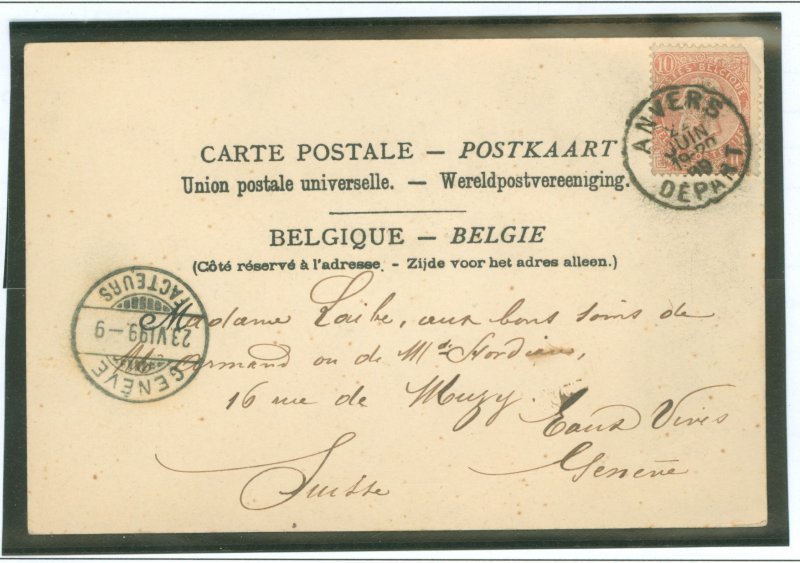 10
POSTES BELGIQUE
ANVERS
JUIN
DÉPART
CARTE POSTALE – POSTKAART
Union postale universelle. – Wereldpostvereeniging.
BELGIQUE – BELGIE
(Côté réservé à l'adresse. - Zijde voor het adres alleen.)
GENÈVE
23 VI 99 – 9
FACTEURS
Madame Loibe, aux bons soins de
ou de
16 rue de Muzy. Eaux Vives
Genève
Suisse